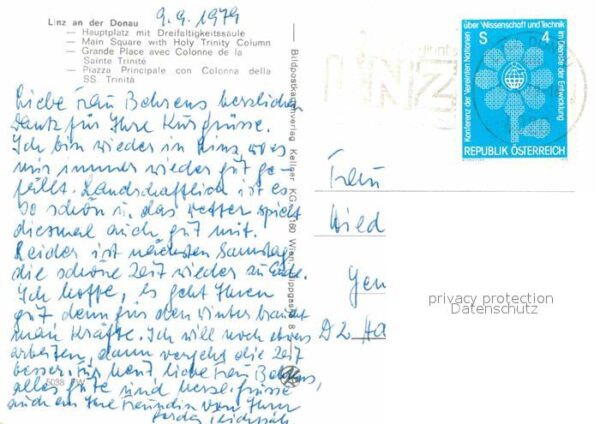 9.9.1979
Linz an der Donau
— Hauptplatz mit Dreifaltigkeitssäule
— Main Square with Holy Trinity Column
— Grande Place avec Colonne de la
Sainte Trinité
— Piazza Principale con Colonna della
SS. Trinità
Liebe Frau Behrens herzlichen
Dank für Ihre Kurgrüsse.
Ich bin wieder in Linz, wo es
mir immer wieder gut ge-
fällt. Landschaftlich ist es
so schön u. das Wetter spielt
diesmal auch gut mit.
Leider ist nächsten Samstag
die schöne Zeit wieder zu Ende.
Ich hoffe, es geht Ihnen
gut denn für den Winter braucht
man Kräfte. Ich will noch etwas
arbeiten, dann vergeht die Zeit
besser. Für heut, liebe Frau Behrens,
alles Gute und herzl. Grüsse
auch an Ihre Freundin von Ihrer
Gerda
5038
Bildpostkartenverlag Kellner KG
Wien
LINZ
Konferenz der Vereinten Nationen
über Wissenschaft und Technik
im Dienste der Entwicklung
S 4
REPUBLIK ÖSTERREICH
Frau
Wied
Gen
D2 Ha
privacy protection
Datenschutz